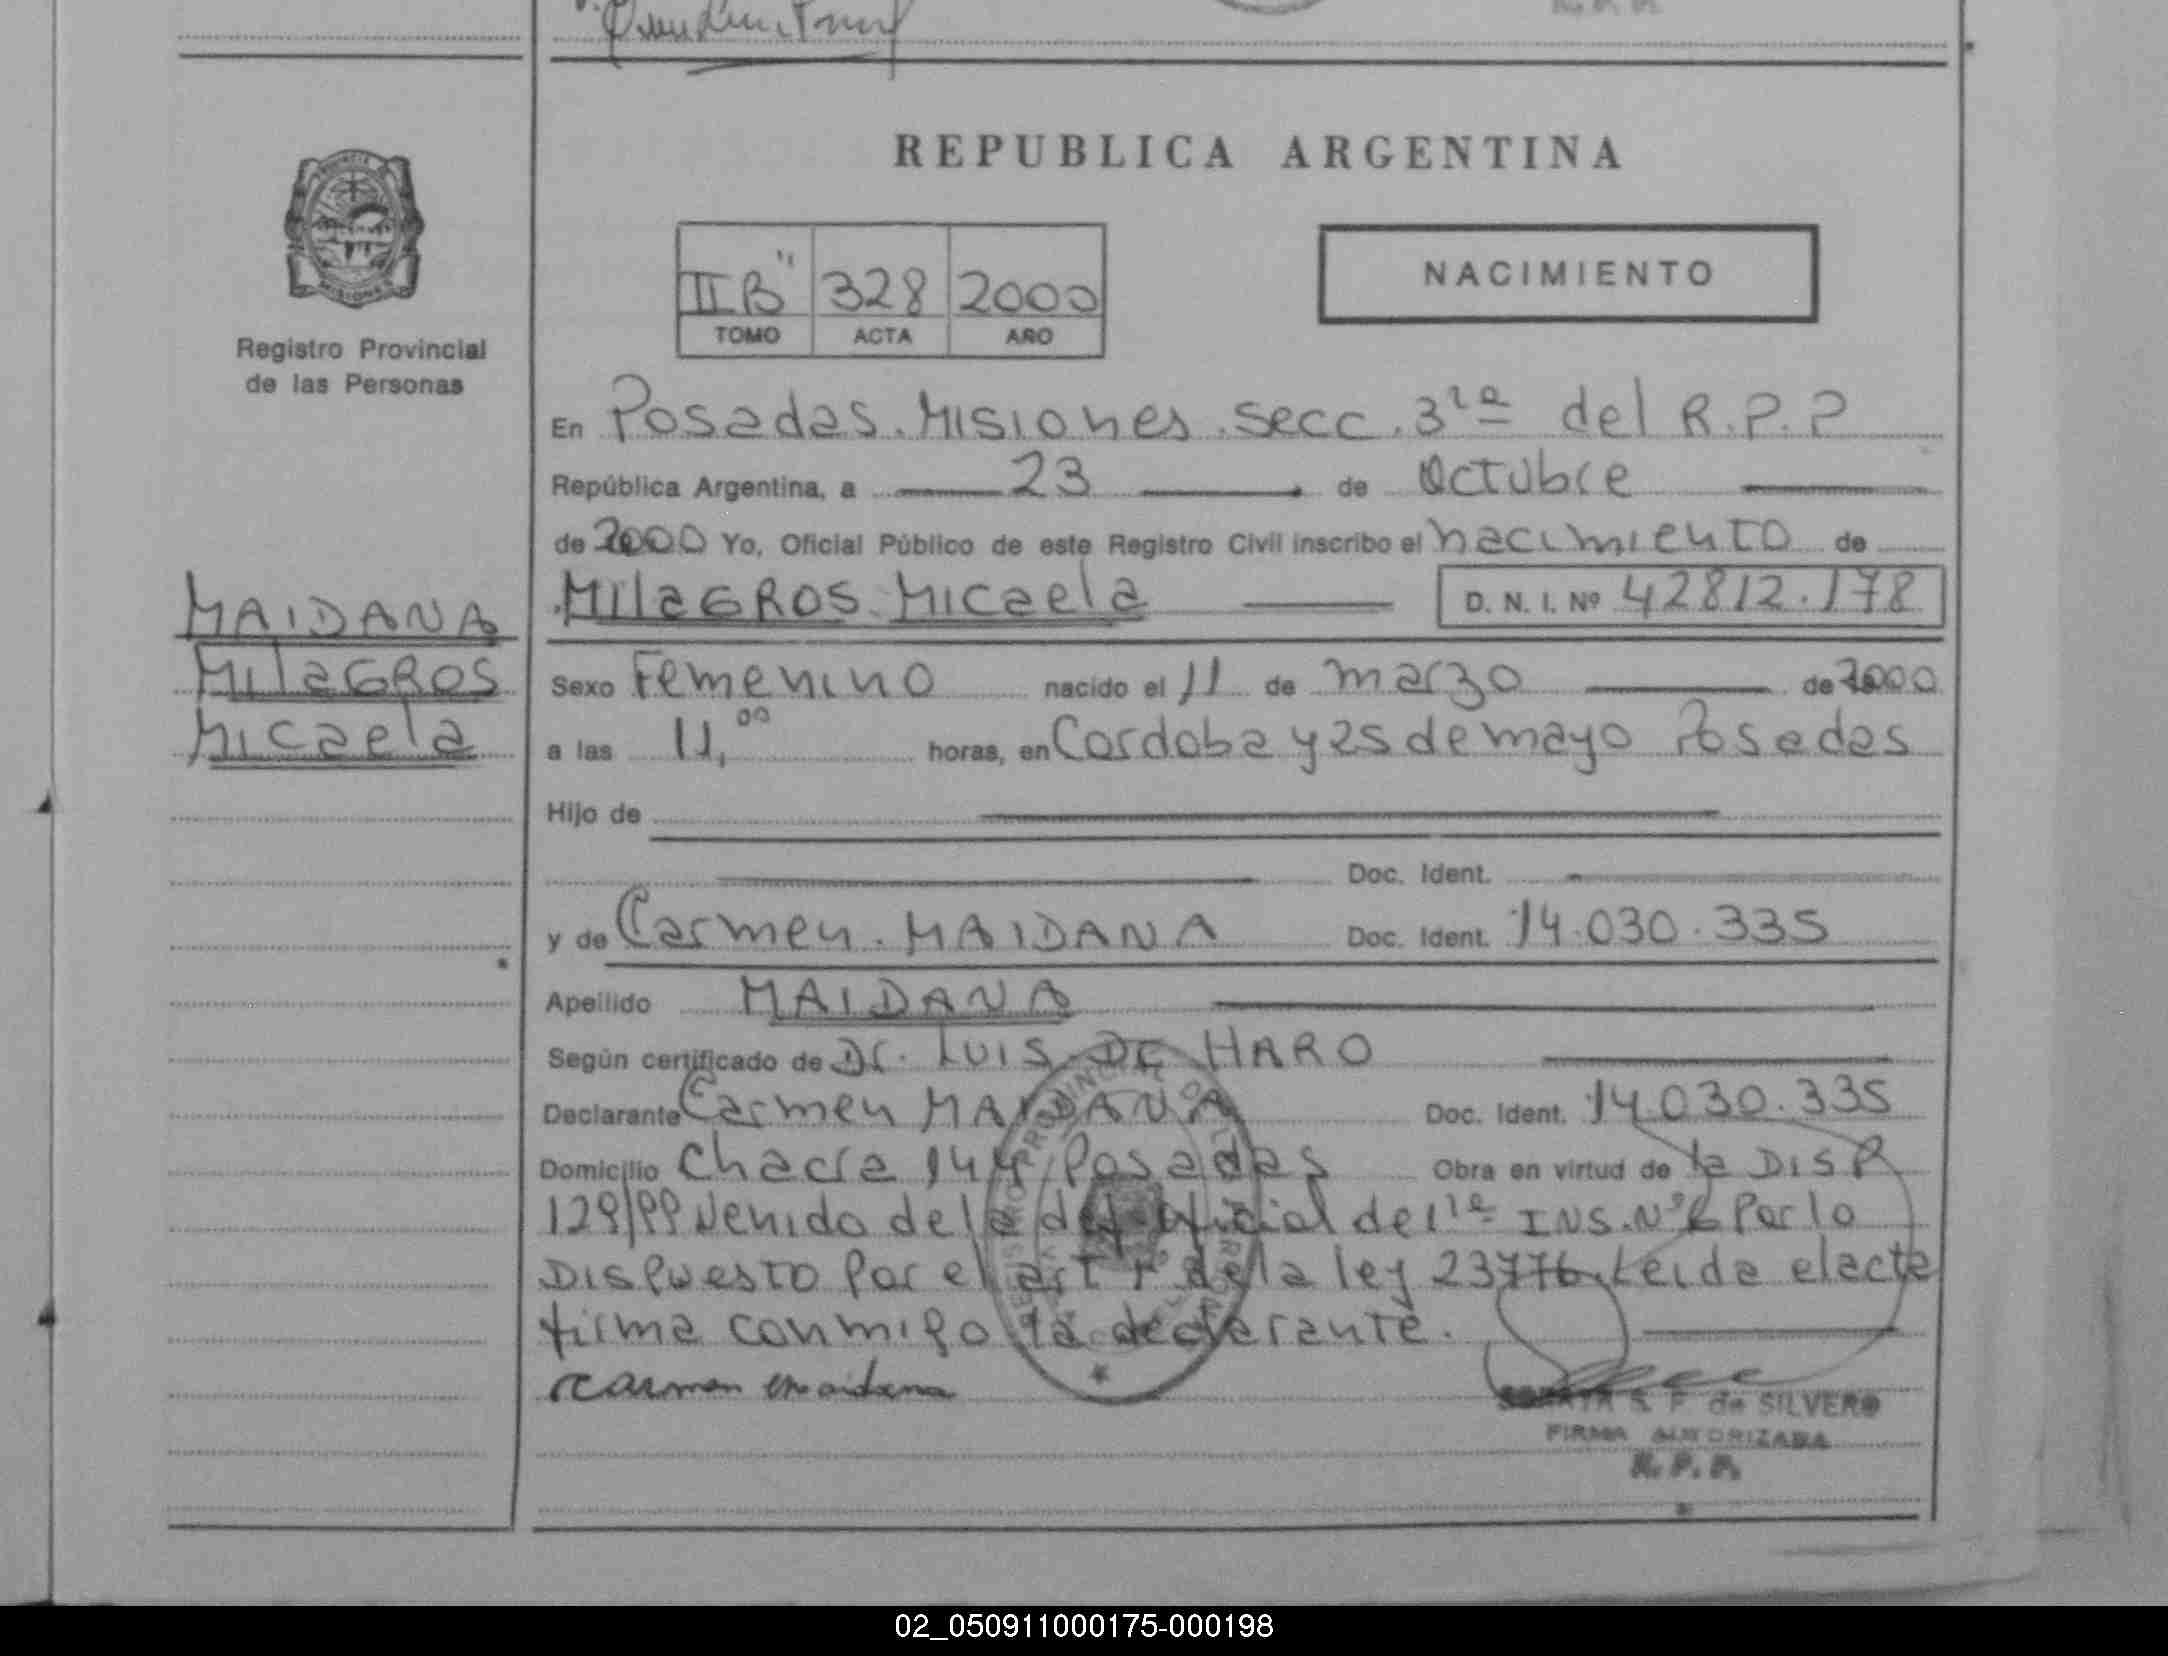 REPUBLICA ARGENTINA
PROVINCIA
MISIONES
Registro Provincial
de las Personas
II B" 328 2000
TOMO ACTA AÑO
NACIMIENTO
En Posadas. Misiones. secc. 3ra del R.P.P
República Argentina, a 23 de Octubre
de 2000 Yo, Oficial Público de este Registro Civil inscribo el nacimiento de
MilaGROS Micaela D. N. I. Nº 42812.178
MAIDANA
MilaGROS
Micaela
Sexo Femenino nacido el 11 de marzo de 2000
a las 11,00 horas, en Cordoba y 25 de mayo Posadas
Hijo de
Doc. Ident.
y de Carmen. MAIDANA Doc. Ident. 14.030.335
Apellido MAIDANA
Según certificado de Dr. LUIS. DE HARO
Declarante Carmen MAIDANA Doc. Ident. 14.030.335
Domicilio Chacra 144 Posadas Obra en virtud de la DISP
129/99 Venido de la def. oficial de 1ra INS. Nº6 Por lo
DISPuesto Por el art 1º de la ley 23776. Leida elacta
firma conmigo la declarante.
carmen maidana
S. F. de SILVERO
FIRMA AUTORIZADA
R. P. P.
02_050911000175-000198